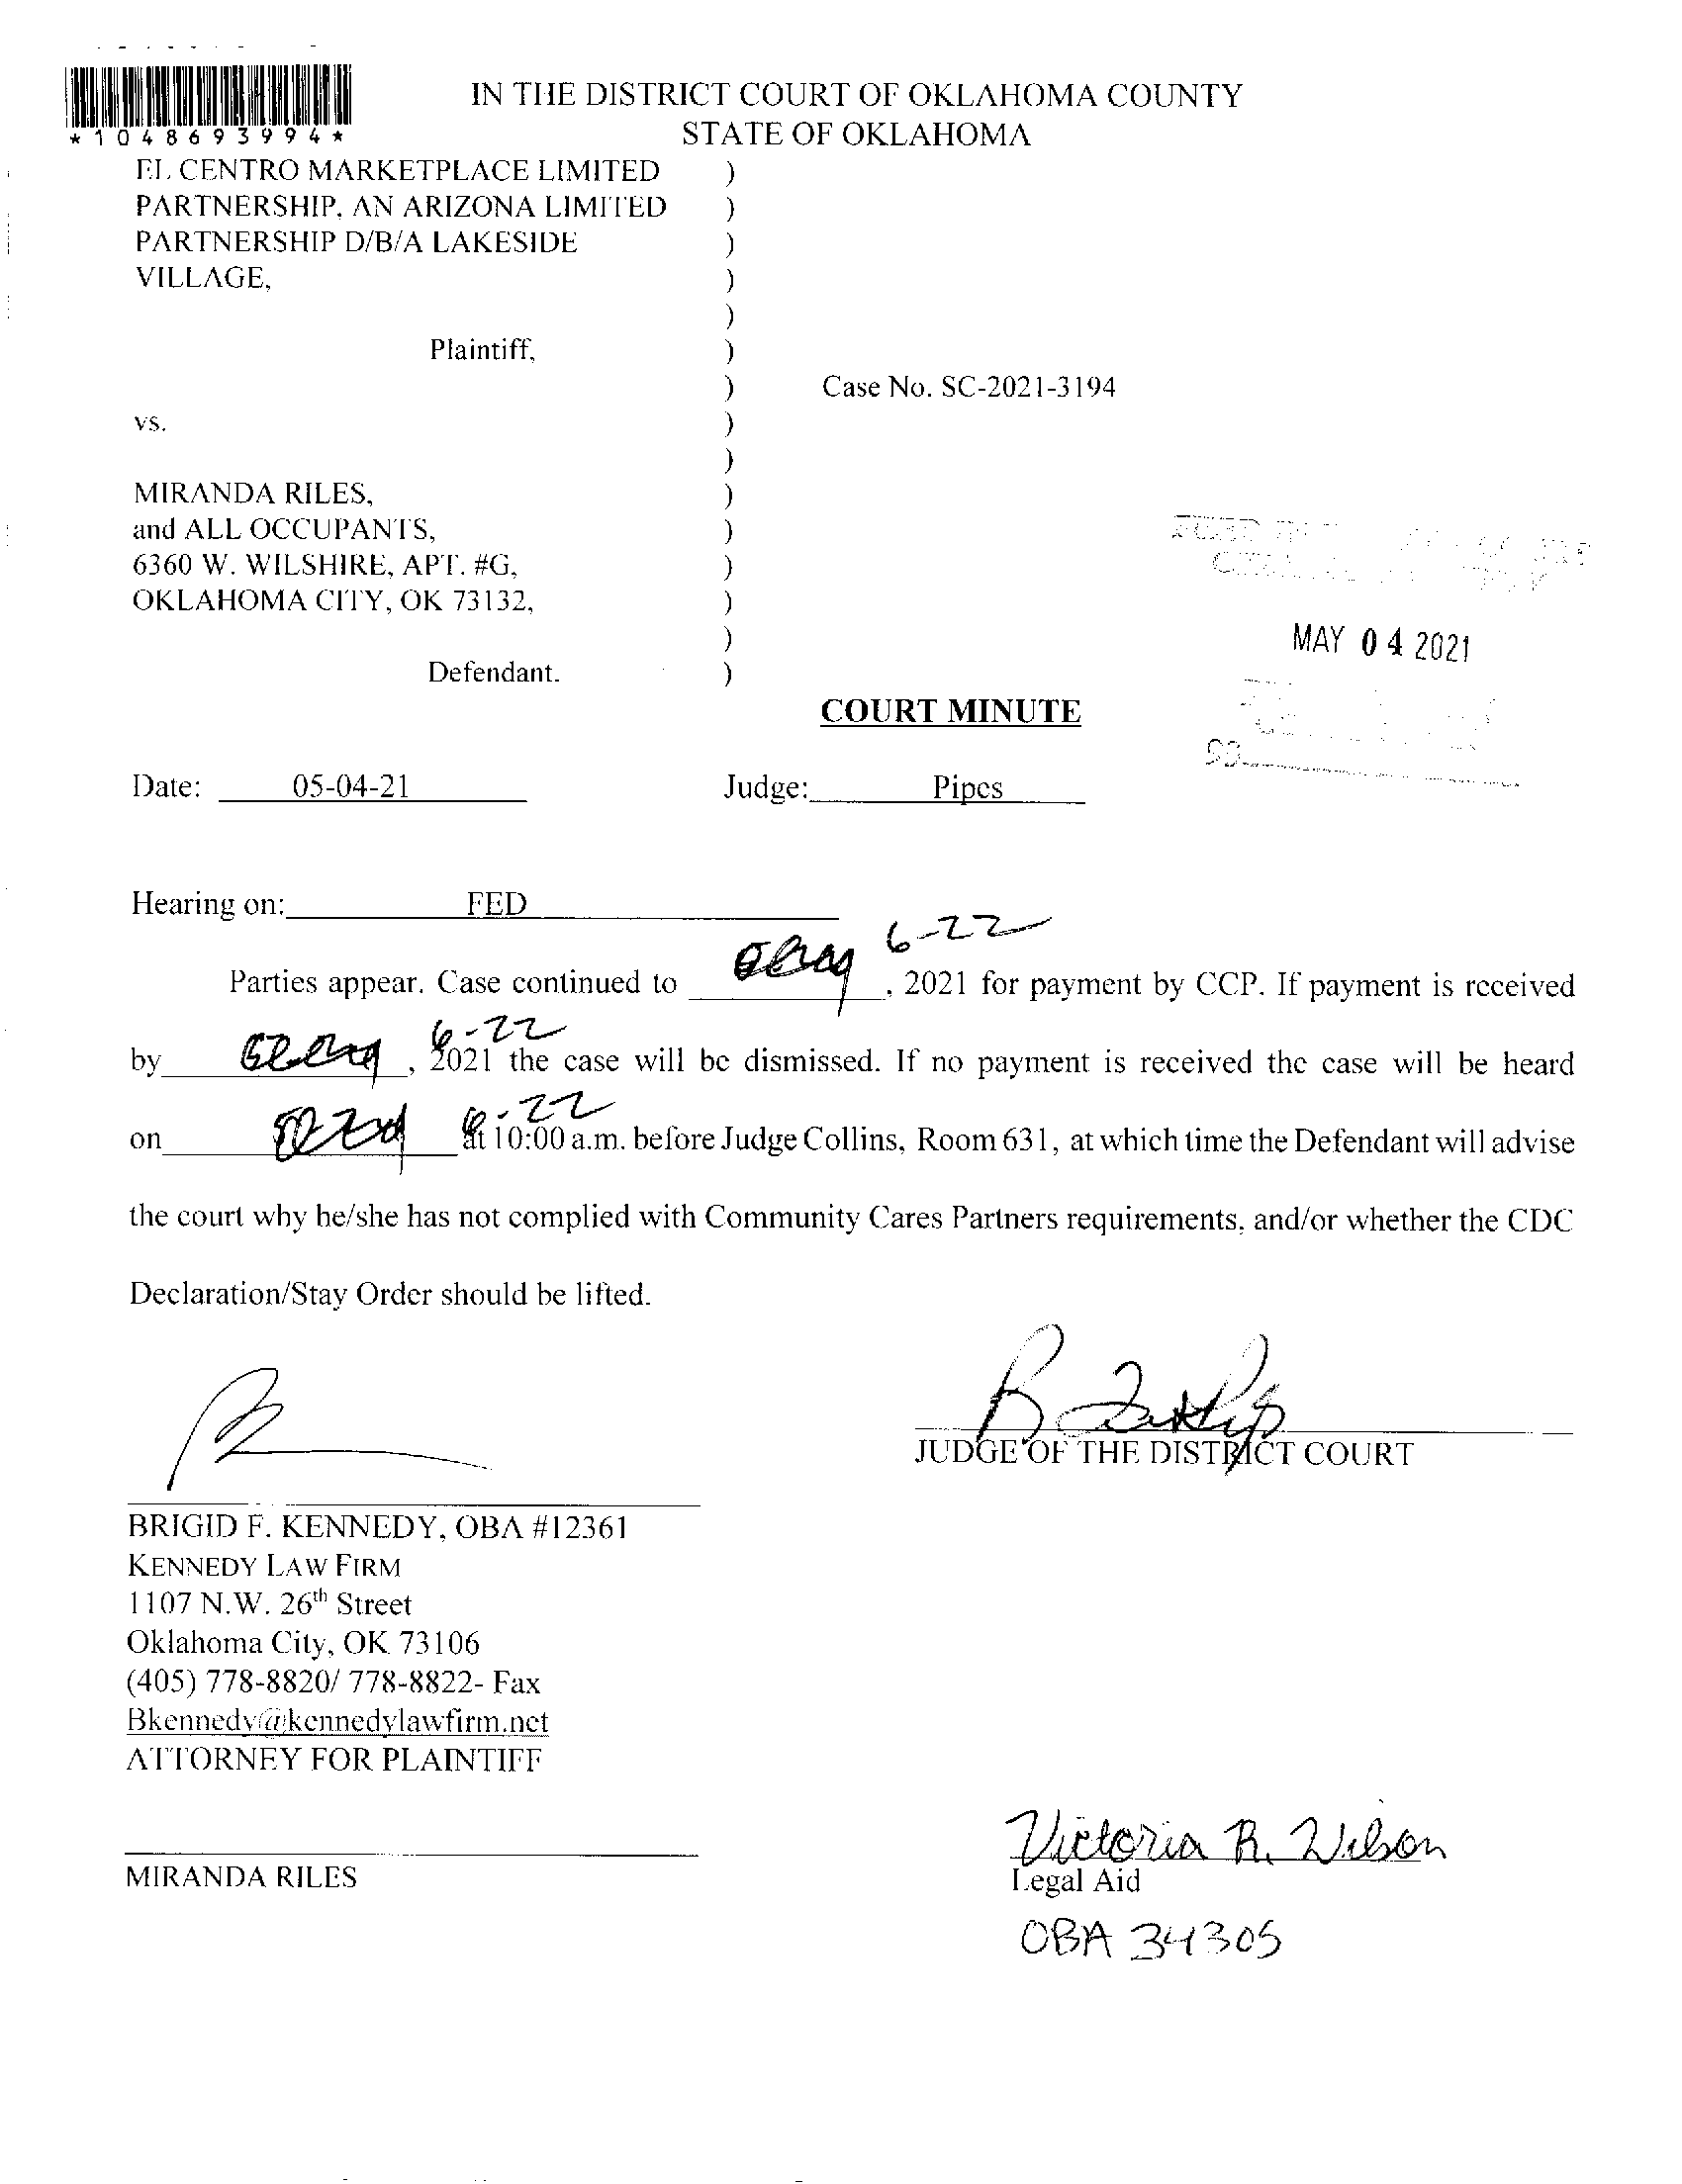 *1048693994*
IN THE DISTRICT COURT OF OKLAHOMA COUNTY
STATE OF OKLAHOMA
EL CENTRO MARKETPLACE LIMITED )
PARTNERSHIP, AN ARIZONA LIMITED )
PARTNERSHIP D/B/A LAKESIDE )
VILLAGE, )
)
Plaintiff, )
) Case No. SC-2021-3194
vs. )
)
MIRANDA RILES, )
and ALL OCCUPANTS, )
6360 W. WILSHIRE, APT. #G, )
OKLAHOMA CITY, OK 73132, )
)
Defendant. )
MAY 04 2021
COURT MINUTE
Date: 05-04-21 Judge: Pipes
Hearing on: FED
6-22
Parties appear. Case continued to , 2021 for payment by CCP. If payment is received
6-22
by , 2021 the case will be dismissed. If no payment is received the case will be heard
6-22
on at 10:00 a.m. before Judge Collins, Room 631, at which time the Defendant will advise
the court why he/she has not complied with Community Cares Partners requirements, and/or whether the CDC
Declaration/Stay Order should be lifted.
JUDGE OF THE DISTRICT COURT
BRIGID F. KENNEDY, OBA #12361
KENNEDY LAW FIRM
1107 N.W. 26th Street
Oklahoma City, OK 73106
(405) 778-8820/ 778-8822- Fax
Bkennedy@kennedylawfirm.net
ATTORNEY FOR PLAINTIFF
Victoria R. Wilson
MIRANDA RILES Legal Aid
OBA 34305